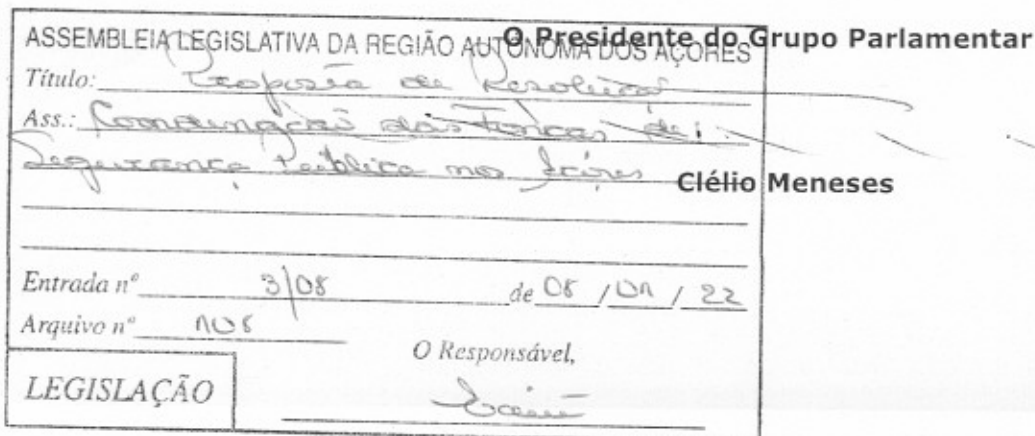 ASSEMBLEIA LEGISLATIVA DA REGIÃO AUTÓNOMA DOS AÇORES
O Presidente do Grupo Parlamentar
Título: Proposta de Resolução
Ass.: das Forças de
Segurança Pública nos Açores
Clélio Meneses
Entrada nº 3/08 de 08 / 01 / 22
Arquivo nº 108
O Responsável,
LEGISLAÇÃO